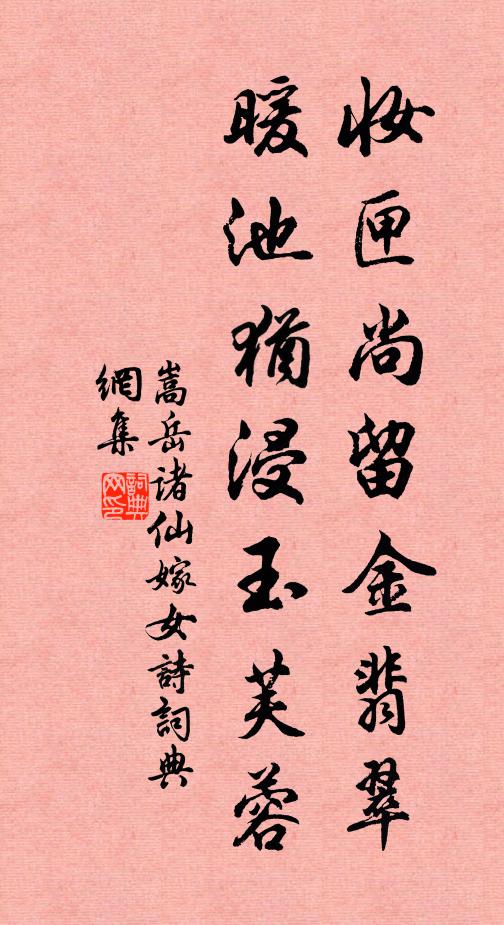 妝匣尚留金翡翠
暖池猶浸玉芙蓉
嵩岳諸仙嫁女詩詞典
網集
詞典網印